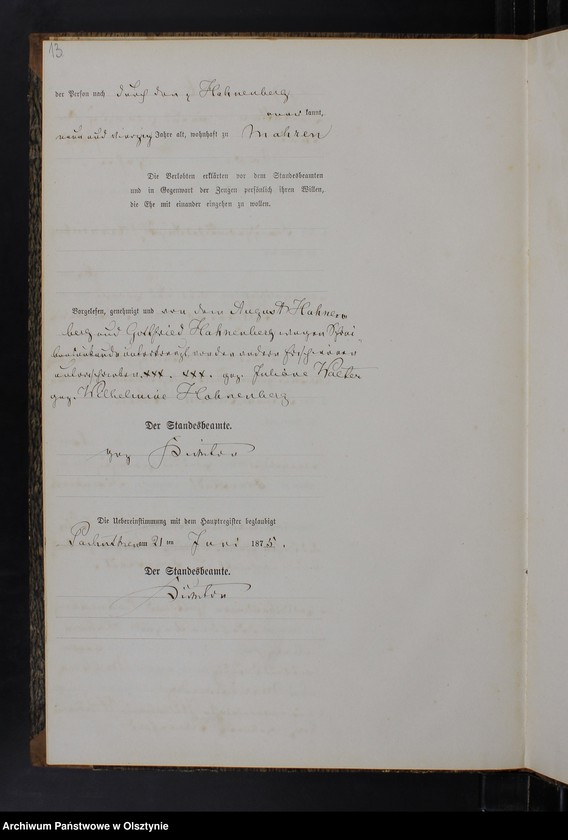 13
der Person nach durch den p Hahnenberg
kannt,
neun und vierzig Jahre alt, wohnhaft zu Mahren
Die Verlobten erklärten vor dem Standesbeamten
und in Gegenwart der Zeugen persönlich ihren Willen,
die Ehe mit einander eingehen zu wollen.
Vorgelesen, genehmigt und von dem August Hahnen
berg und Gottfried Hahnenberg wegen Schrei
bensunkunde unterkreuzt, von den anderen
unterschrieben. xxx. xxx. gez. Juliane Walter
gez. Wilhelmine Hahnenberg
Der Standesbeamte.
gez
Die Uebereinstimmung mit dem Hauptregister beglaubigt
am 21 ten Juni 1875.
Der Standesbeamte.
Archiwum Państwowe w Olsztynie